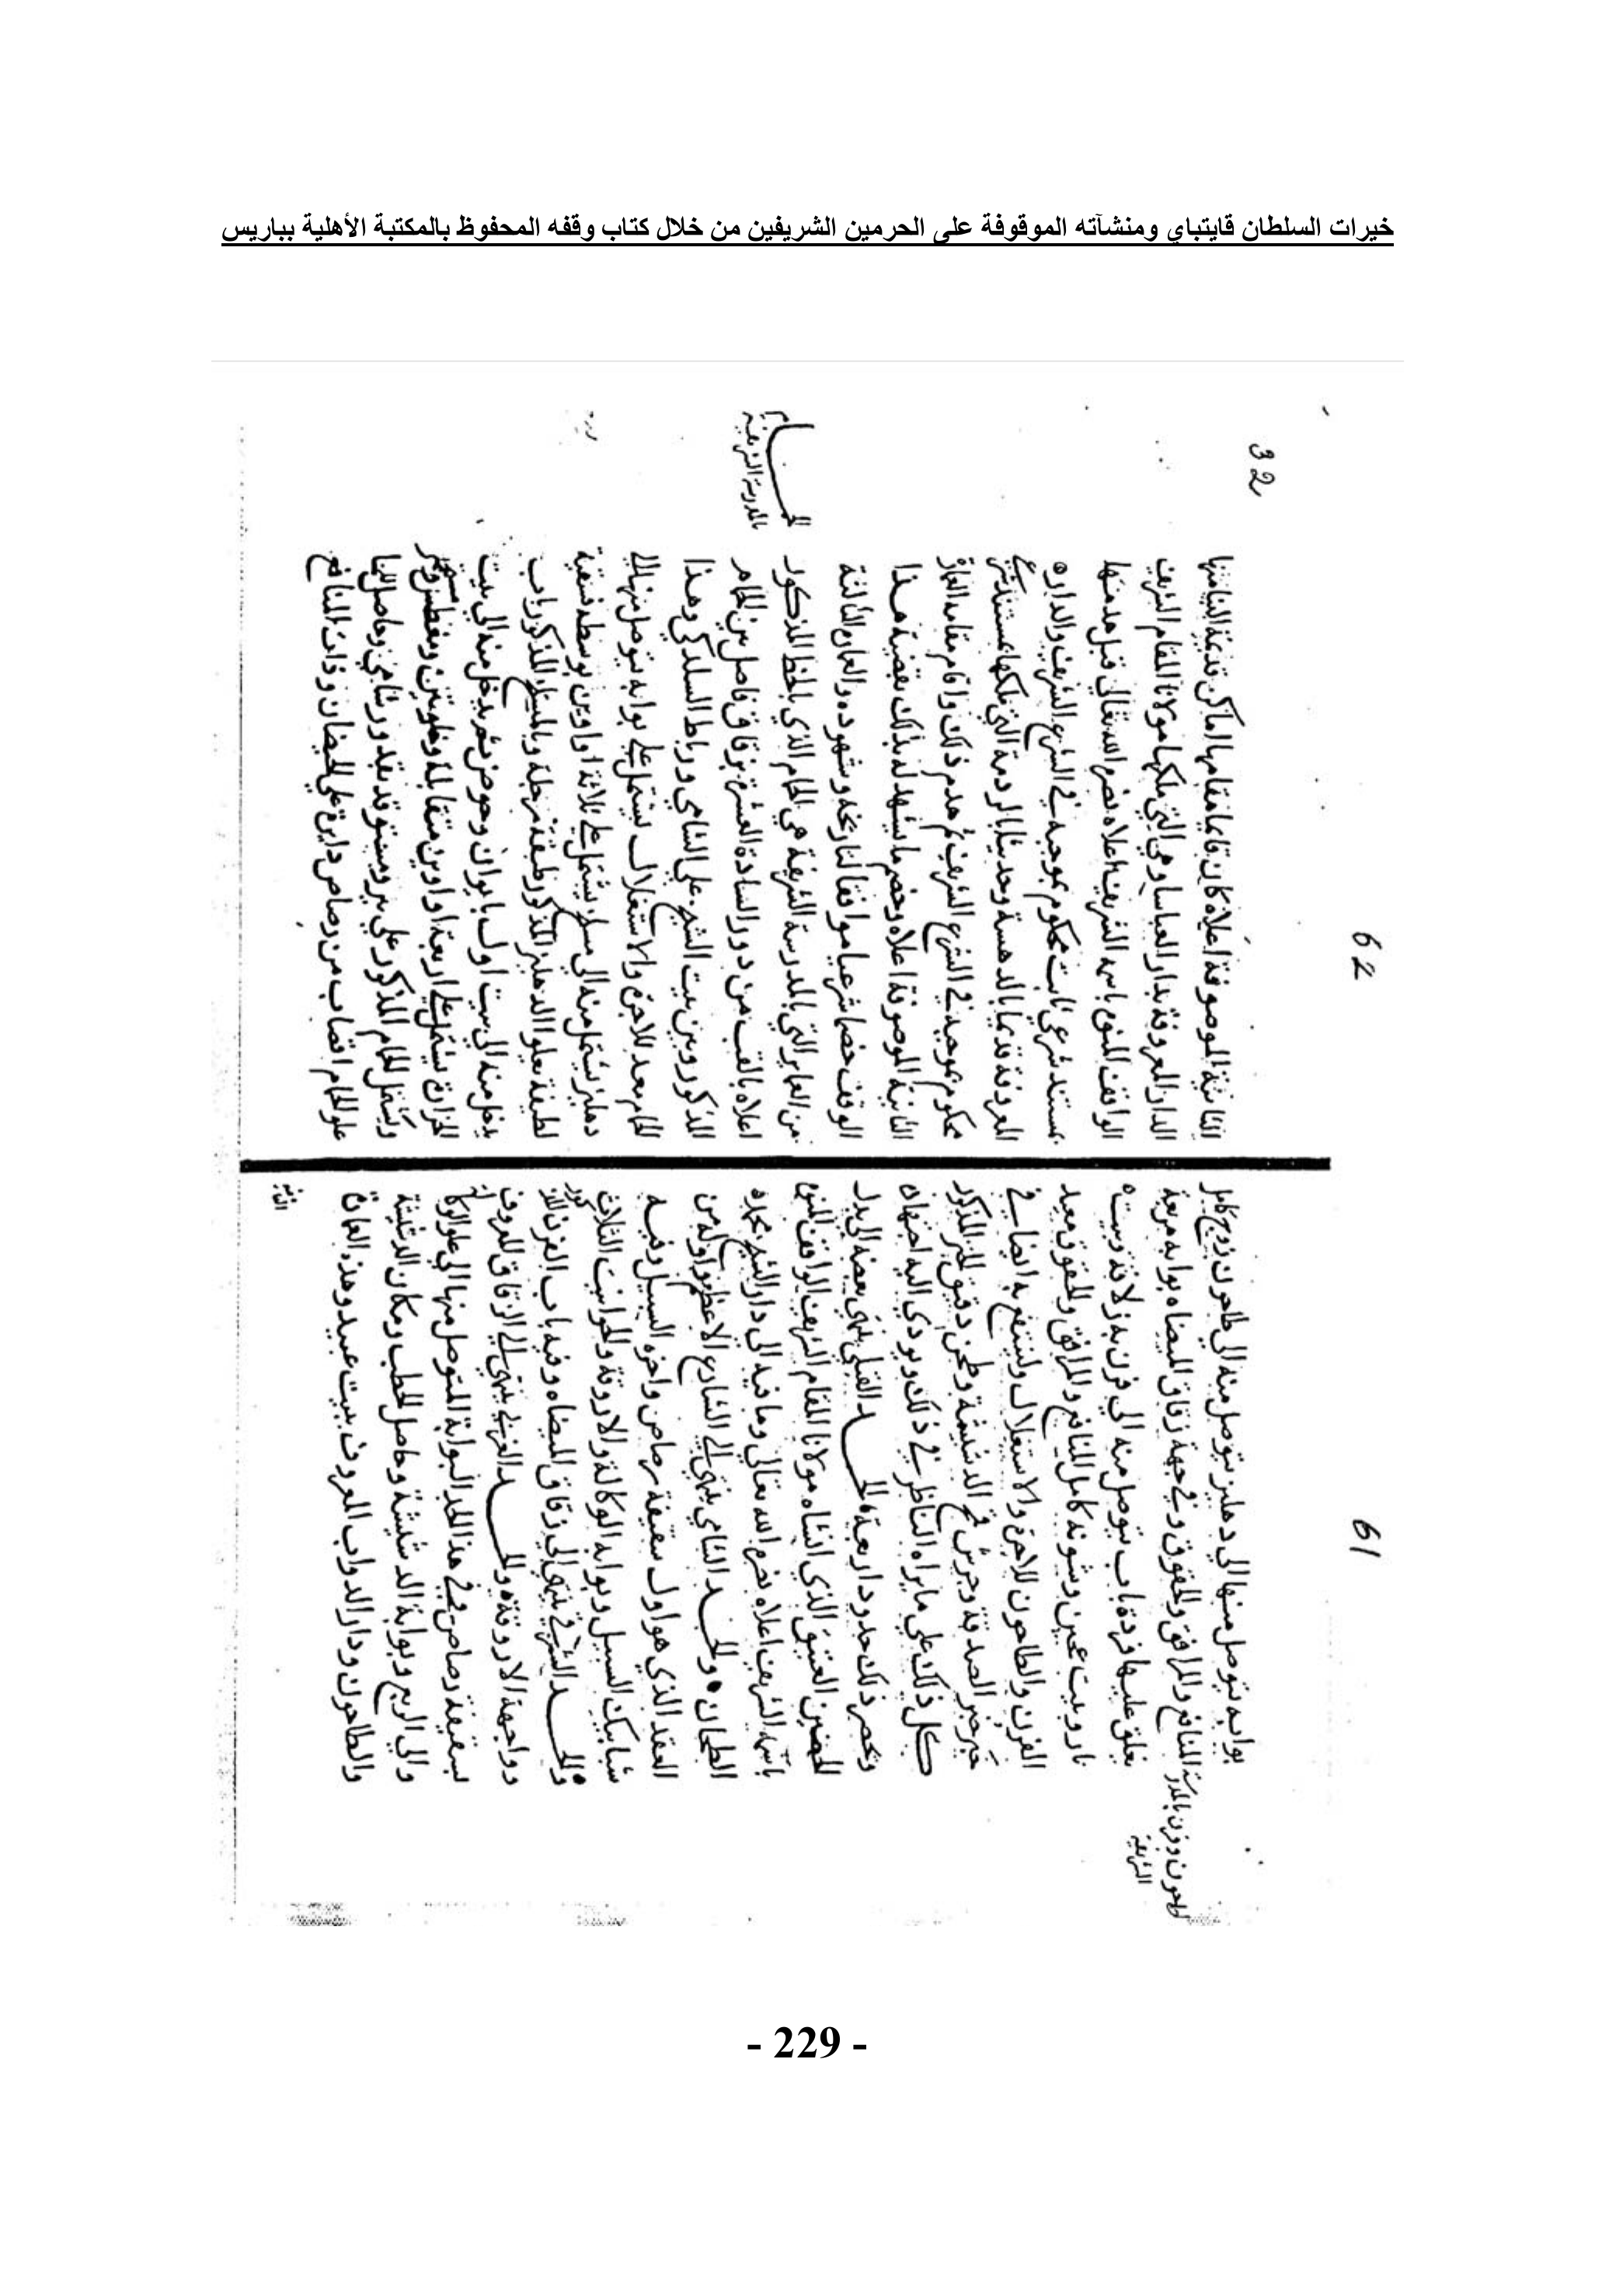 خيرات السلطان قايتباي ومنشآته الموقوفة على الحرمين الشريفين من خلال كتاب وقفه المحفوظ بالمكتبة الأهلية بباريس
61
بوابه يتوصل منها الي دهليز يتوصل منه الي طاحون زوج كامل
المنافع والمرافق والحقوق وفي جهة زقاق الميضاه بوابه مربعة
يغلق عليها فردة باب يتوصل منه الي فرن به زلاقة وبيت
نار وبيت عجين وشونه كامل المنافع والمرافق والحقوق معد
الفرن والطاحون للاجرة والاستغلال ولينتفع به ايضا في
خبز خبز الصدقة وجرش قمح الدشيشة وطحن دقيق الخبز المذكور
كل ذلك علي ما يراه الناظر في ذلك ويودي اليه اجتهاده
ويحصر ذلك حدود اربعة الحد القبلي ينتهي بعضه الي
الحصن العتيق الذي انشاه مولانا المقام الشريف الواقف المنوه
باسمه الشريف اعلاه نصره الله تعالي وما فيه الي دار الشيخ محمد
الطحان والحد الشامي ينتهي الي الشارع الاعظم واوله من
العقد الذي هو اول سقيفة رصاص واخره السبيل وفيه
شبابيك السبيل وبوابه الوكالة والاروقة والحوانيت الثلاث
والحد الشرقي ينتهي الي زقاق الميضاه وفيه باب الفرن المذكور
وواجهة الاروقة والحد الغربي ينتهي الي الزقاق المعروف
بسقيفة رصاص وفي هذا الحد البوابة المتوصل منها الي علو الوكالة
والي الربع وبوابة الدشيشة وحاصل الحطب ومكان الدشيشة
والطاحون ودار الدواب المعروف ببيت عبيد وهذه العمارة
الثانية
طاحون وفرن بالمدرسة
الشريفة
62
32
الثانية الموصوفة اعلاه كان قايما مقامها اماكن قديمة البنا منها
الدار المعروفة بدار العباسا وهي التي ملكها مولانا المقام الشريف
الواقف المنوه باسمه الشريف اعلاه نصره الله تعالي قبل هدمها
بمستند شرعي ثابت محكوم بموجبه في الشرع الشريف والدار
المعروفة قديما بالدهسة وحديثا بالردمة التي ملكها بمستند شرعي
محكوم بموجبه في الشرع الشريف ثم هدم ذلك واقام مقامه العمارة
الثانية الموصوفة اعلاه وخصم ما يشهد له بذلك بقضية هذا
الوقف خصما شرعيا موافقا لتاريخه وشهوده والعمارة الثالثة
من العماير التي بالمدرسة الشريفة هي الحمام الذي بالخط المذكور
اعلاه بالقرب من دور السادة العشرة بزقاق فاصل بين الحمام
المذكور وبين بيت الشيخ علي الشامي ورباط السلد كي وهذا
الحمام معد للاجرة والاستغلال يشتمل علي بوابه يتوصل منها الي
دهليز يتوصل منه الي مسلخ يشتمل علي ثلاثة اواوين بوسطه فسقية
لطيفة يعلو الدهليز المذكور طبقة مرحلة وبالمسلخ المذكور باب
يدخل منه الي بيت اول بايوان وحوض ثم يدخل منه الي بيت
الحرارة يشتمل علي اربعة اواوين متقابلة وخلوتين ومغطس وحجر
ويشتمل الحمام المذكور علي بير ومستوقد بقدور رصاص وحاصل للما
علو الحمام اقصاب من رصاص دايرة علي الحيضان وذات المنافع
الحمام
بالمدرسة الشريفة
- 229 -